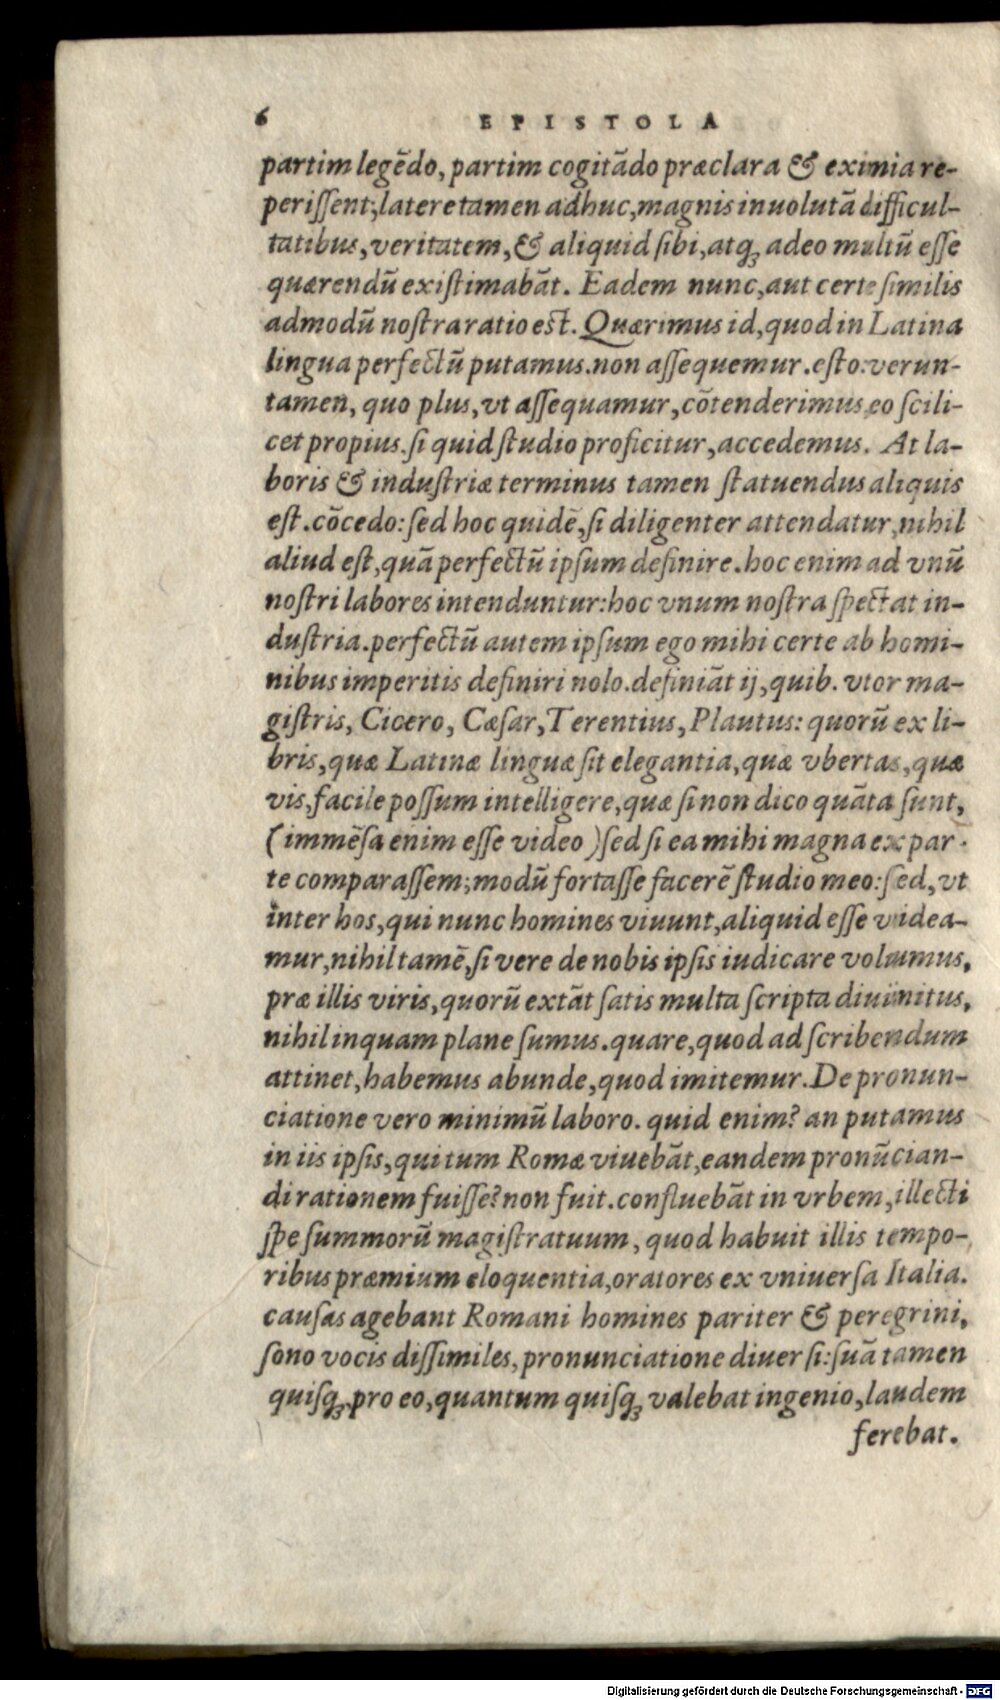 6 EPISTOLA
partim legẽdo, partim cogitãdo præclara & eximia re-
periſſent; latere tamen adhuc, magnis inuolutã difficul-
tatibus, veritatem, & aliquid ſibi, atqꝫ adeo multũ eſſe
quærendũ exiſtimabãt. Eadem nunc, aut certe ſimilis
admodũ noſtra ratio est. Quærimus id, quod in Latina
lingua perfectũ putamus. non aſſequemur. eſto: verun-
tamen, quo plus, vt aſſequamur, cõtenderimus, eo ſcili-
cet propius. ſi quid ſtudio proficitur, accedemus. At la-
boris & induſtriæ terminus tamen ſtatuendus aliquis
eſt. cõcedo: ſed hoc quidẽ, ſi diligenter attendatur, nihil
aliud eſt, quã perfectũ ipſum definire. hoc enim ad vnũ
noſtri labores intenduntur: hoc vnum noſtra ſpectat in-
duſtria. perfectũ autem ipſum ego mihi certe ab homi-
nibus imperitis definiri nolo. definiãt ij, quib. vtor ma-
giſtris, Cicero, Cæſar, Terentius, Plautus: quorũ ex li-
bris, quæ Latinæ linguæ ſit elegantia, quæ vbertas, quæ
vis, facile poſſum intelligere, quæ ſi non dico quãta ſunt,
(immẽſa enim eſſe video) ſed ſi ea mihi magna ex par-
te comparaſſem; modũ fortaſſe facerẽ ſtudio meo: ſed, vt
inter hos, qui nunc homines viuunt, aliquid eſſe videa-
mur, nihil tamẽ, ſi vere de nobis ipſis iudicare volumus,
præ illis viris, quorũ extãt ſatis multa ſcripta diuinitus,
nihil inquam plane ſumus. quare, quod ad ſcribendum
attinet, habemus abunde, quod imitemur. De pronun-
ciatione vero minimũ laboro. quid enim? an putamus
in iis ipſis, qui tum Romæ viuebãt, eandem pronũcian-
di rationem fuiſſe? non fuit. confluebãt in vrbem, illecti
ſpe ſummorũ magiſtratuum, quod habuit illis tempo-
ribus præmium eloquentia, oratores ex vniuerſa Italia.
cauſas agebant Romani homines pariter & peregrini,
ſono vocis diſſimiles, pronunciatione diuerſi: ſuã tamen
quiſqꝫ, pro eo, quantum quiſqꝫ valebat ingenio, laudem
ferebat.
Digitalisierung gefördert durch die Deutsche Forschungsgemeinschaft - DFG